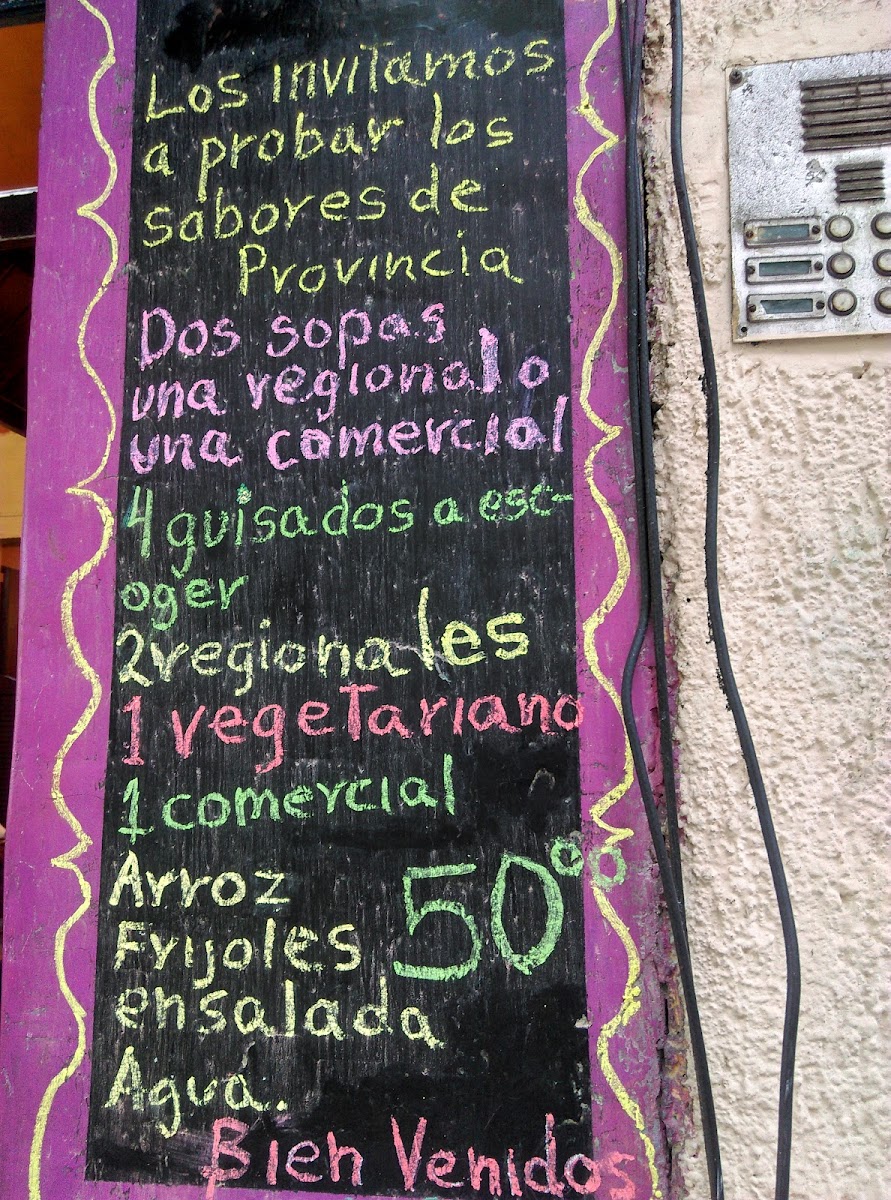 Los invitamos
a probar los
sabores de
Provincia
Dos sopas
una regional o
una comercial
4 guisados a esc-
oger
2 regionales
1 vegetariano
1 comercial
Arroz
Frijoles
ensalada
Agua.
50°°
Bien Venidos